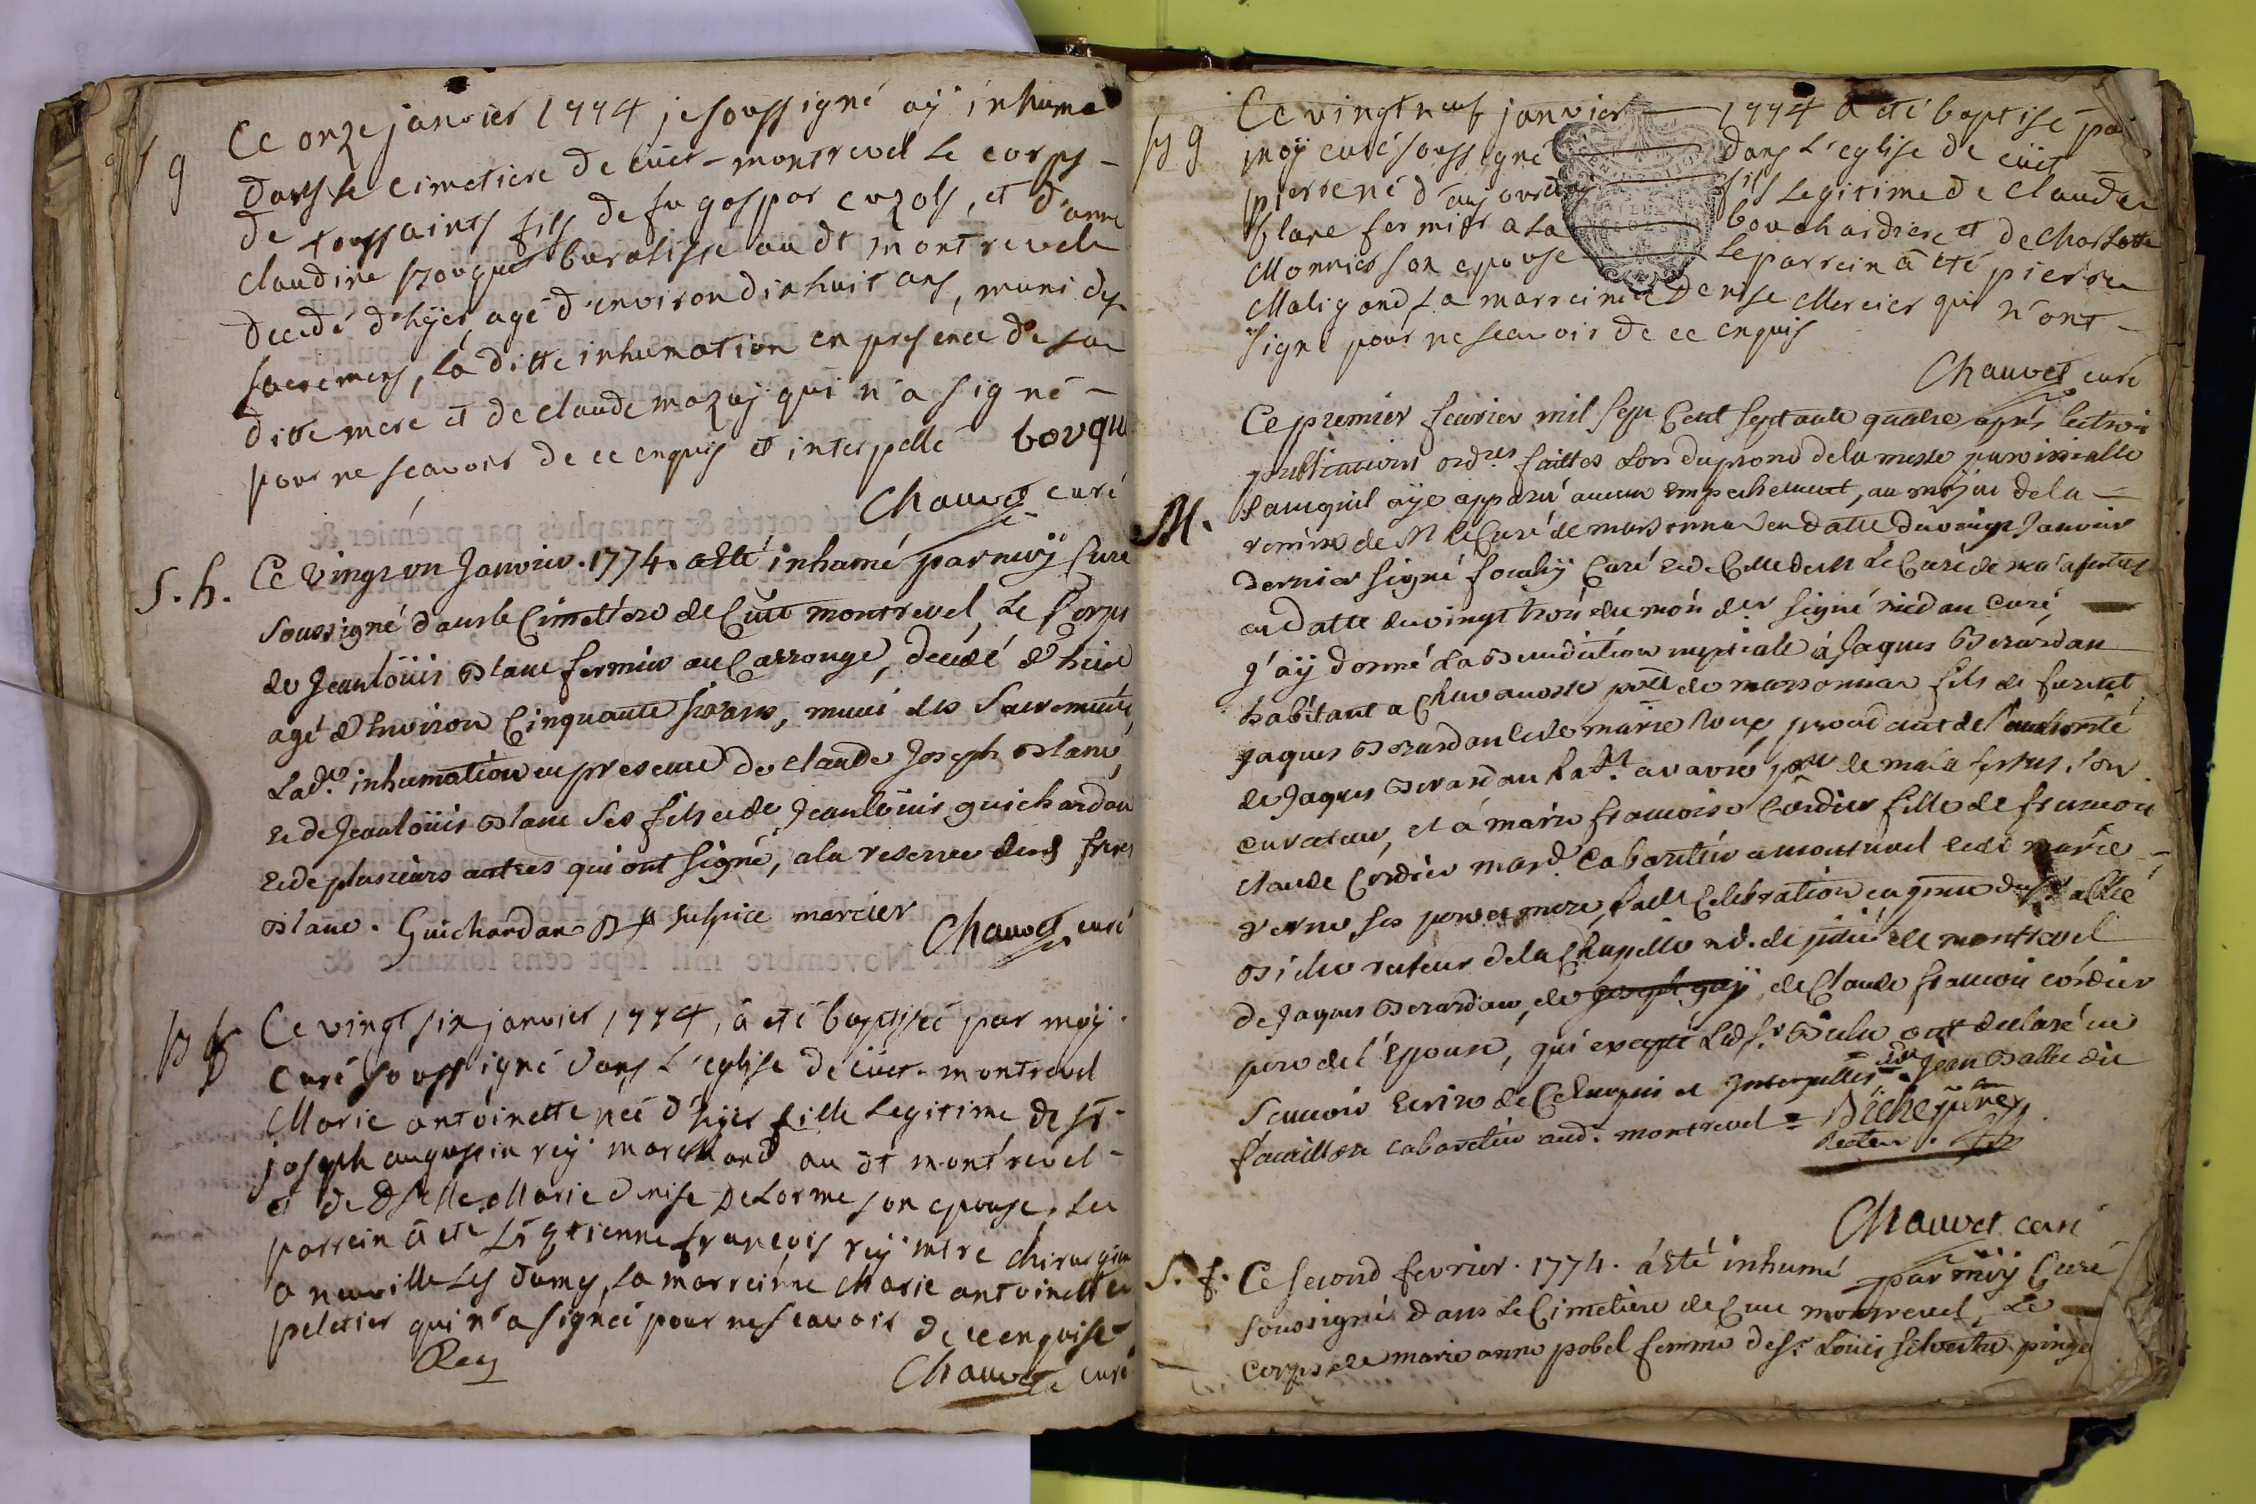 S g
Ce onze janvier 1774 je soussigné aÿ inhumé
dans le cimetiere de cüet-montrevel le corps
de toussaints fils de fu gaspar cuzols, et d'anne
claudine bouquer buraliste au dt montrevel
decedé d'hÿer, agé d'environ dixhuit ans, muni des
sacremens, la ditte inhumation en presence de sa
ditte mere et de claude mazuÿ qui n'a signé
pour ne scavoir de ce enquis et interpellé bouqu
Chauvet curé
S. h.
Ce vingt un Janvier. 1774. a eté inhumé par moÿ Curé
Soussigné dans le Cimetiere de Cüet montrevel, Le Corps
de Jean loüis Blanc fermier au Carronge, decedé d'hier
agé d'environ Cinquante six ans, muni des Sacrements,
Lade. inhumation en presence de claude Joseph Blanc,
et de Jean loüis Blanc Ses fils et de Jean loüis guichardan
et de plusieurs autres qui ont signé, a la reserve desd freres
Blanc. Guichardan B sulpice mercier Chauvet curé
B f
Ce vingt six janvier 1774, a eté baptisée par moÿ
Curé soussigné dans l'eglise de cüet-montrevel
Marie antoinette née d'hÿer fille legitime de sr
joseph augustin reÿ marchand au dt montrevel
et de dselle Marie denise Delorme son epouse, Le
parrein a eté Sr etienne françois reÿ mtre chirurgien
a neuville les dames, la marreinne Marie antoinette
peletier qui n'a signée pour ne scavoir de ce enquise
Rey Chauvet curé
B g
Ce vingt neuf janvier 1774 a eté baptisé par
moÿ curé soussigné dans l'eglise de cüet
pierre né d'aujourdhuy fils legitime de claude
blanc fermier a la bouchardiere et de charlotte
Monnier son epouse Le parrein a eté pierre
Maligand la marreinne Denise Mercier qui n'ont
signé pour ne scavoir de ce enquis
Chauvet curé
M.
Ce premier fevrier mil sept Cent septante quatre aprés les trois
publications ordres faittes Lors du prone de la messe paroissialle
sans qu'il aÿe apparu aucun empechement, au moÿen de la
remise de Mr le Curé de marsonnas en datte du vingt Janvier
dernier signé Curé et de Celle de Mr Le Curé de
en datte du vingt trois du mois der signé curé,
j'aÿ donné La Benediction nuptiale à Jaques Berardan
habitant a Chavanosse psse de marsonnas fils de
Jaques Berardan et de marie roux, procedant de l'authorité
de Jaques Berardan son
curateur, et a marie francoise Cordier fille de francois
claude Cordier mard. Cabaretier a montrevel et de marie
verne ses pere et mere, Celebration en
recteur de la Chapelle nd. de pitié de montrevel
de Jaques Berardan, de joseph guÿ, de Claude francois cordier
pere de l'Epouse, qui excepté Led sr. ont declaré ne
Scavoir Ecrire de Ce Enquis et Interpellés Jean
cabaretier aud. montrevel
Recteur.
Chauvet curé
S. f.
Ce second fevrier. 1774. a eté inhumé par moÿ Curé
soussigné dans Le Cimetiere de Cüet montrevel, Le
corps de marie anne pobel femme de sr. Loüis silvestre